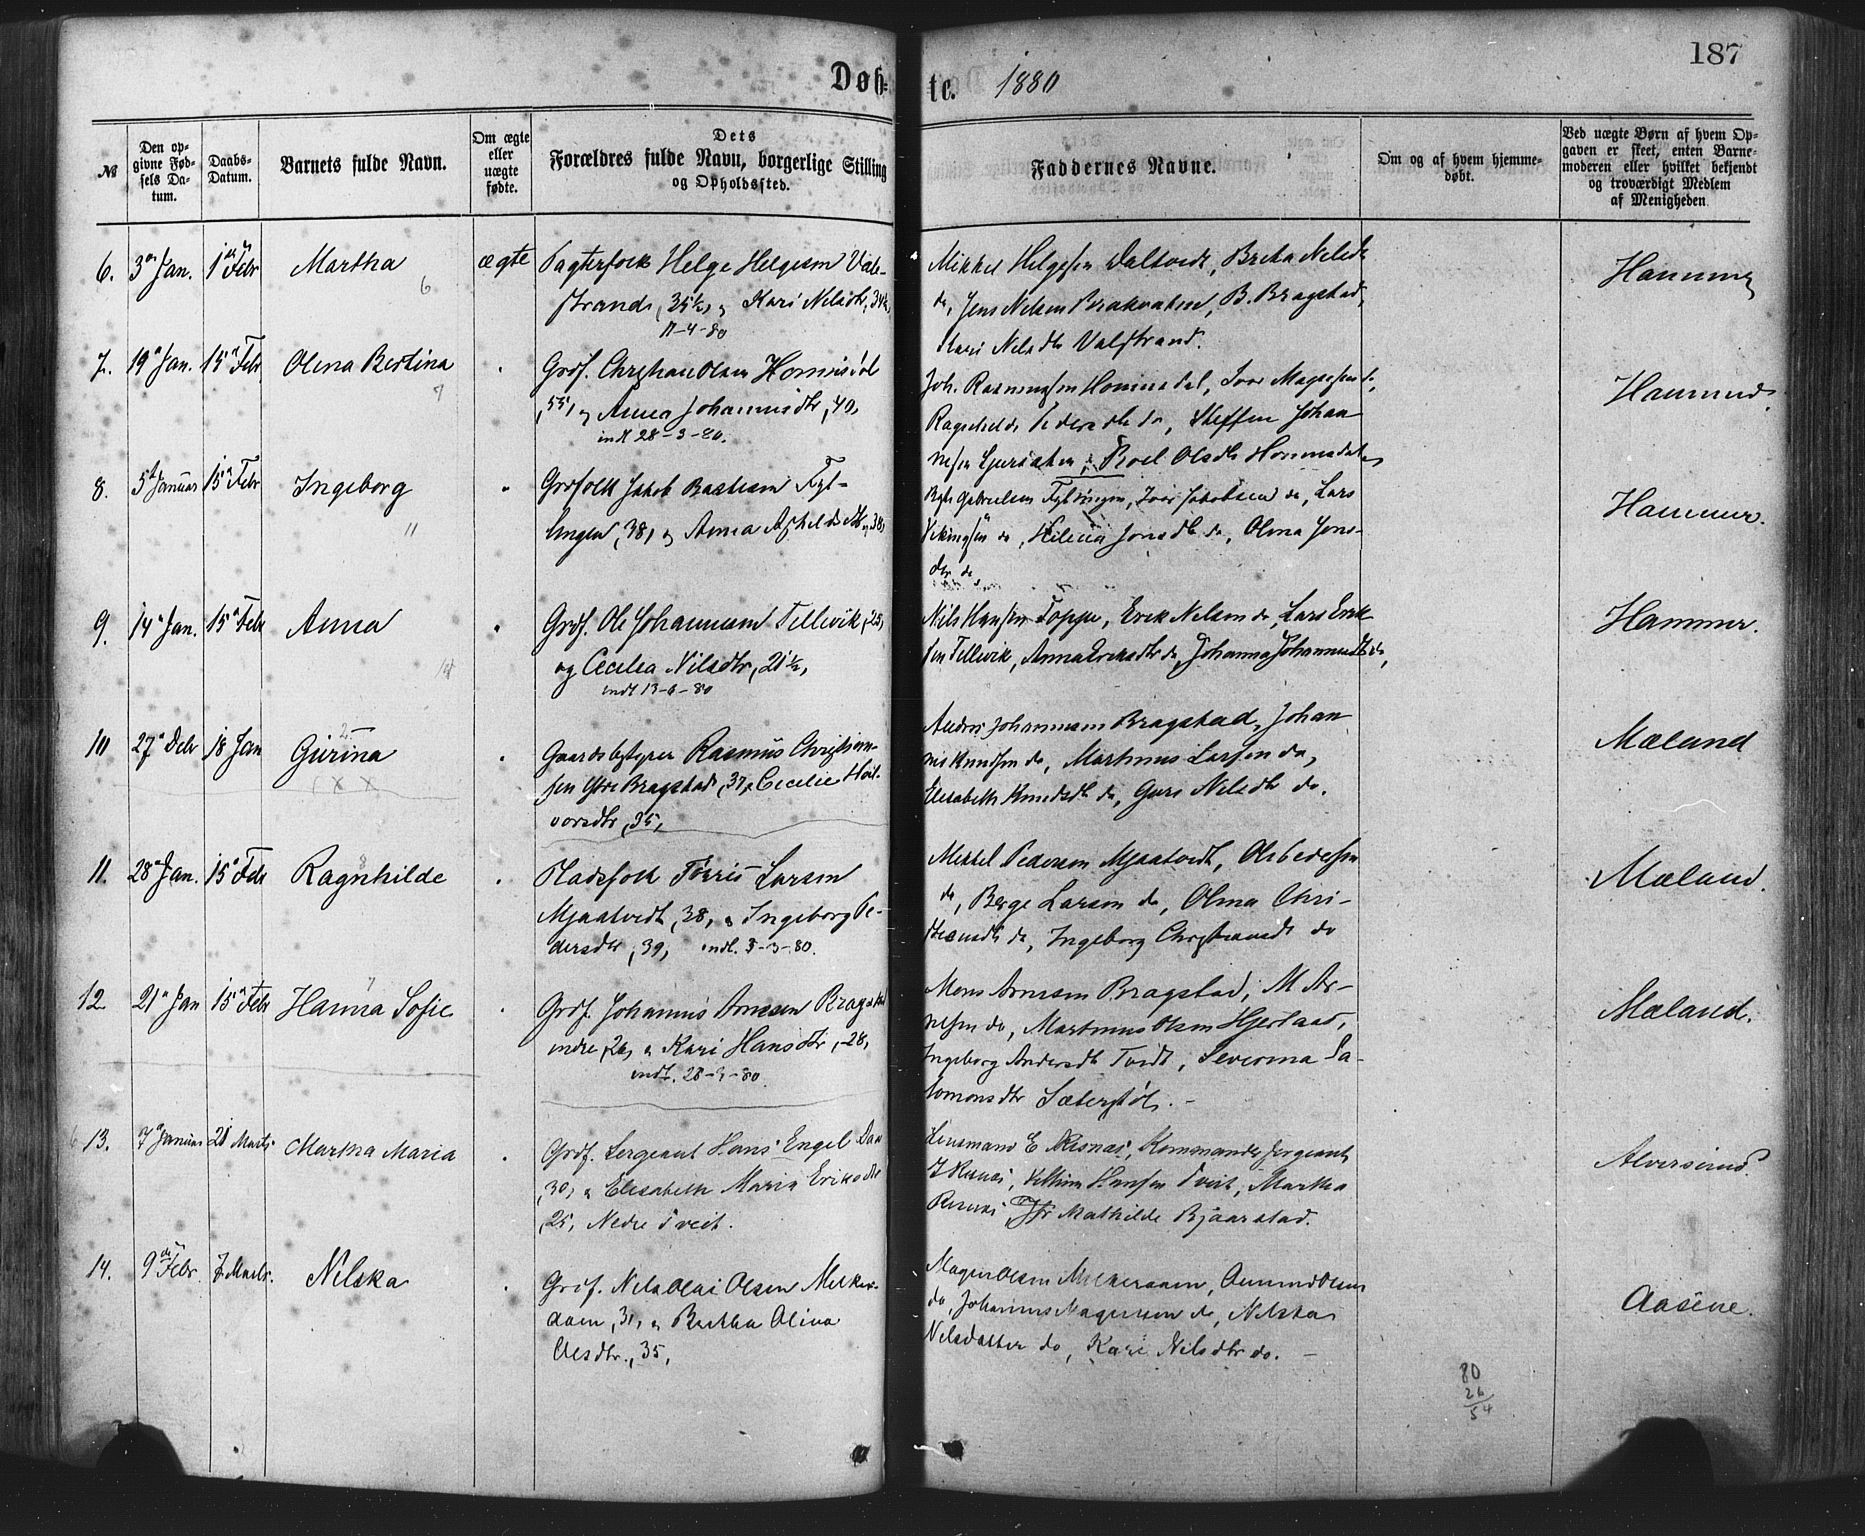 187
Døb-
te. 1880
№
Den op-
givne Fød-
sels Da-
tum.
Daabs-
Datum.
Barnets fulde Navn.
Om ægte
eller
uægte
fødte.
Dets
Forældres fulde Navn, borgerlige Stilling
og Opholdssted.
Faddernes Navne.
Om og af hvem hjemme-
døbt.
Ved uægte Børn af hvem Op-
gaven er skeet, enten Barne-
moderen eller hvilket bekjendt
og troværdigt Medlem
af Menigheden
6. 3 Jan. 1 Febr Martha ægte Pagterfolk Helge Helgesen Vale-
6
strand, 35½, og Kari Nilsdtr, 34½,
11-4-80
Mikkel Helgesen Daltvedt, Bretha Nilsdtr
do, Jens Nelsen Brakvatne, B. Bragstad,
Kari Nilsdtr Valestrand.
Hammer
7. 19 Jan. 15 Febr Olena Bertina Grdf. Christian Olsen Hommedal
55, og Anna Johannisdtr, 40,
indt 28-3-80.
Joh. Rasmussen Hommedal, Ivar Magnesen do,
Ragnhilde Pedersdtr do, Steffen Johan
nesen, Roel Olsdtr Hommedal
Hammer
8. 5 Januar 15 Febr Ingeborg Grdfolk Jakob Bastesen Fyl-
11
lingen, 38, og Anna, 38,
Gabrielsen Fyllingen, Ivar Jakobsen do, Lars
Vikingsen do, Helena Jonsdtr do, Olena Jons-
dtr do,
Hammer.
9. 14 Jan. 15 Febr Anna Grdf. Ole Johannesen Tellevik, 25,
og Cecelia Nilsdtr, 21½,
indt 13-6-80
Nils Hansen Toppe, Erik Nelsen do, Lars Erik
sen Tellevik, Anna Eriksdtr do, Johanna Johannesdtr do,
Hammer.
10 27 Debr 18 Jan Gurina Gaardsbestyrer Rasmus Christian-
sen Ytre Bragstad, 37, Cecelie Hal-
vorsdtr, 35,
Anders Johannesen Bragstad, Johan
nes Knudsen do, Martinus Larsen do,
Elisabeth Knudsdtr do, Guri Nilsdtr do.
Mæland
11. 28 Jan. 15 Febr Ragnhilde Pladsfolk Torris Larsen
Mjaatvedt, 38, og Ingeborg Pe-
dersdtr, 39, indl. 3-3-80.
Mikkel Pedersen Mjaatvedt, Ole Pedersen
do, Berge Larsen do, Olena Chri-
stiansdtr do, Ingeborg Christiansdtr do
Mæland.
12 21 Jan 15 Febr Hanna Sofie Grdf. Johannes Arnesen Bragstad
indre, 26, og Kari Hansdtr, 28,
indt. 28-3-80.
Mons Arnesen Bragstad, M Ar-
nesen do, Martinus Olsen Hjertaas,
Ingeborg Andersdtr Tvedt, Severina Sa-
lomonsdtr Sæterstøl. -
Mæland.
13. 7 Januar 21 Marts Martha Maria Grdf. Sergeant Hans Engel Daae
30, og Elisabeth Maria Eriksdtr
25, Nedre Tveit.
Lensmand E Risnæs, Kommandersergeant
I Risnæs, Vilhelm Hansen Tveit, Martha
Risnæs, Jfr Mathilde Bjaarstad.
Alversund.
14. 9 Febr. 7 Marts. Nelska Grdf. Nels Olai Olsen Melker-
aaen, 31, og Bertha Olina
Olsdtr., 35,
Magne Olsen Melkeraaen, Amund Olsen
do, Johannes Magnesen do, Nelska
Nelsdatter do, Kari Nilsdtr do. -
Aasene.
80
26
54